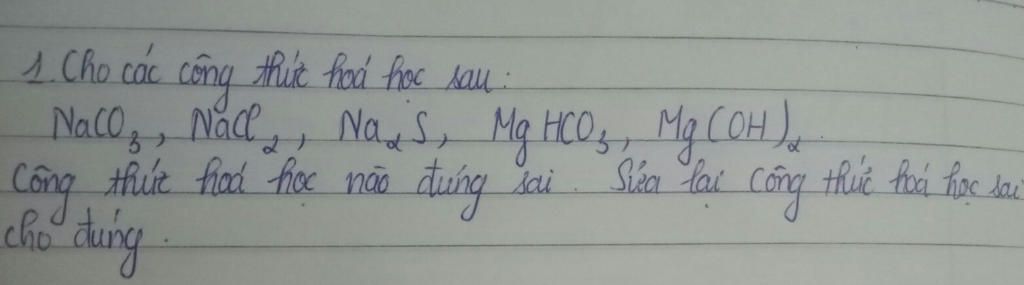 1. Cho các công thức hoá học sau:
NaCO₃, NaCl₂, Na₂S, MgHCO₃, Mg(OH)₂.
Công thức hoá học nào đúng sai. Sửa lại công thức hoá học sai
cho đúng.